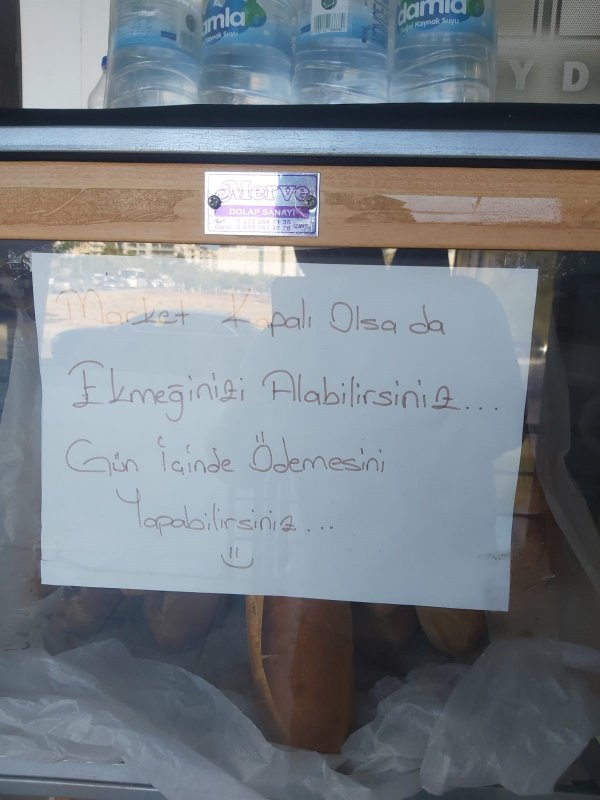 damla
Doğal Kaynak Suyu
damla
Doğal Kaynak Suyu
Y D
Merve
DOLAP SANAYİ
Market Kapalı Olsa da
Ekmeğinizi Alabilirsiniz...
Gün İçinde Ödemesini
Yapabilirsiniz...